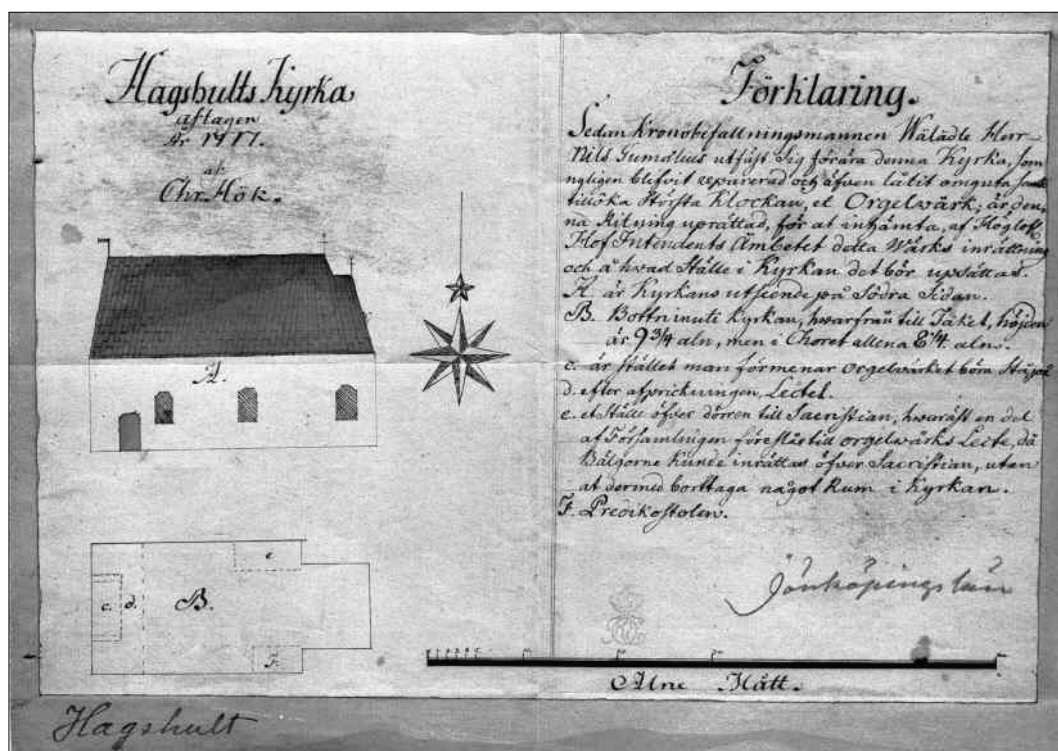 Hagshults Kyrka
aftagen
År
af
Chr. Hök.
A.
c. d. B. e
F.
Hagshult
Förklaring.
Sedan Kronobefallningsmannen Wälädle Herr
Nils Gumælius utfäst sig förära denna Kyrka, som
nyligen blifvit reparerad och äfven låtit omgiuta samt
tillöka Största Klockan, et Orgelwärk; är den-
na Ritning uprättad, för at inhämta, af Höglofl.
Hof Intendents Ämbetet detta Wärks inrättning
och å hwad Ställe i Kyrkan det bör upsättas.
A. är Kyrkans utseende på Södra Sidan.
B. Bottn inuti Kyrkan, hwarfrån till Taket, höjden
är 9 3/4 aln, men i Choret allena 8 1/4. aln.
c. är stället man förmenar orgelwärket böra
d. efter afprickningen, Lectel.
e. et Ställe öfver dörren till Sacristian, hwaräst en del
af Församlingen föreslås till orgelwärks Lecte, då
Bälgorne kunde inrättas öfver Sacristian, utan
at dermed borttaga något Rum i Kyrkan.
F. Predikostolen.
Jönköpings län
Alne Mått.